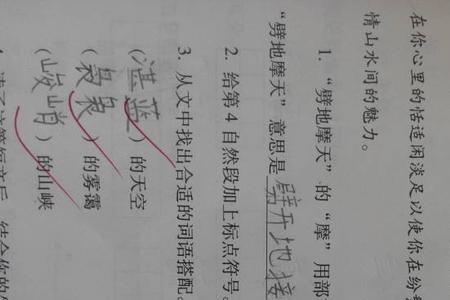 在你心里的恬适闲淡足以使你在纷
情山水间的魅力。
1. “劈地摩天”的“摩”用部
“劈地摩天”意思是劈开地接
2. 给第 4 自然段加上标点符号。
3. 从文中找出合适的词语搭配。
(湛蓝)的天空
(袅袅)的雾霭
(峻峭)的山峡